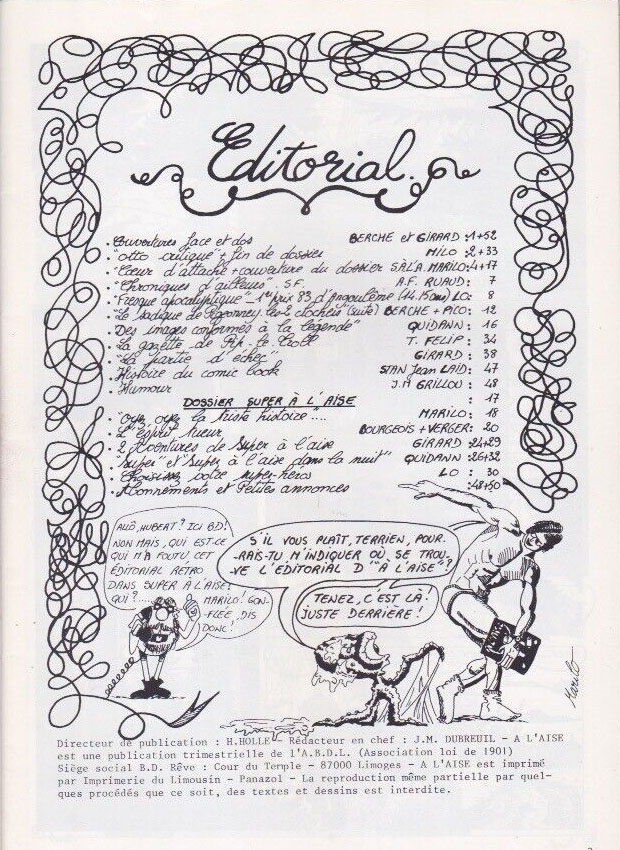 Editorial.
. Couvertures face et dos BERCHE et GIRARD :1+52
. "Otto critique" + fin de dossier MILO : 2+33
. Coeur d'attache + couverture du dossier SAL'A. MARILO:4+17
. "Chroniques d'ailleurs" S.F. A.F. RUAUD: 7
. "Fresque apocalyptique" - 1er prix 83 d'Angoulême (14.15ans) LO: 8
. "Le sadique de Pigonney les 2 clochers" (suite) BERCHE + PICO: 12
. Des images conformes à la légende" QUIDANN : 16
. La gazette de Pik-le-Troll T. FELIP : 34
. "La partie d'échec" GIRARD : 38
. Histoire du comic book STAN Jean LAID: 47
. Humour J.M GRILLOU : 48
DOSSIER SUPER À L'AISE : 17
. "Oyez, oyez la triste histoire".... MARILO: 18
. L'Esprit tueur BOURGEOIS + VERGER: 20
. 2 Aventures de Super à l'aise GIRARD :24+29
. "Super" et "Super à l'aise dans la nuit" QUIDANN :26+32
. Choisissez votre super-héros LO : 30
. Abonnements et Petites annonces :48+50
ALLÔ, HUBERT? ICI BD!
NON MAIS, QUI EST-CE
QUI M'A FOUTU CET
ÉDITORIAL RETRO
DANS SUPER À L'AISE!
QUI?....
MARILO! GON-
FLÉE, DIS
DONC!
S'IL VOUS PLAÎT, TERRIEN, POUR-
-RAIS-TU M'INDIQUER OÙ SE TROU-
-VE L'EDITORIAL D'"À L'AISE"?
TENEZ, C'EST LÀ!
JUSTE DERRIÈRE!
Marilo
Directeur de publication : H.HOLLE - Rédacteur en chef : J.M. DUBREUIL - A L'AISE
est une publication trimestrielle de l'A.B.D.L. (Association loi de 1901)
Siège social B.D. Rêve : Cour du Temple - 87000 Limoges - A L'AISE est imprimé
par Imprimerie du Limousin - Panazol - La reproduction même partielle par quel-
ques procédés que ce soit, des textes et dessins est interdite.